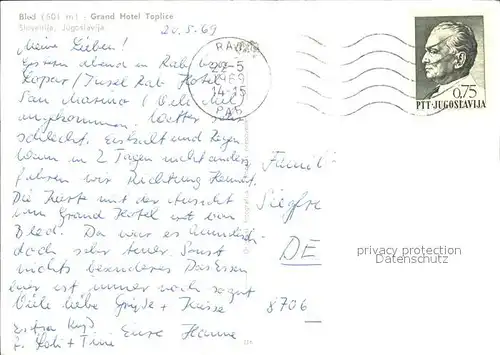 Bled (501 m) : Grand Hotel Toplice
Slovenija, Jugoslavija
20.5.69
Meine Lieben!
Gestern abend in Rab bzw.
Lopar / Insel Rab Hotel
San Marino (
angekommen. Wetter sehr
schlecht. Eiskalt und Regen
Wenn in 2 Tagen nicht anders
fahren wir Richtung Heimat.
Die Karte mit der Aussicht
vom Grand Hotel ist von
Bled. Da war es wunderschön
doch sehr teuer. Sonst
nichts besonderes. Das Essen
hier ist immer noch so gut
Viele liebe Grüße + Küsse
Eure Hanne
Extra
+ Tini
22-5
1969
14-15
RAB
0,75
PTT·JUGOSLAVIJA
Famil
Siegfr
DE
8706
privacy protection
Datenschutz